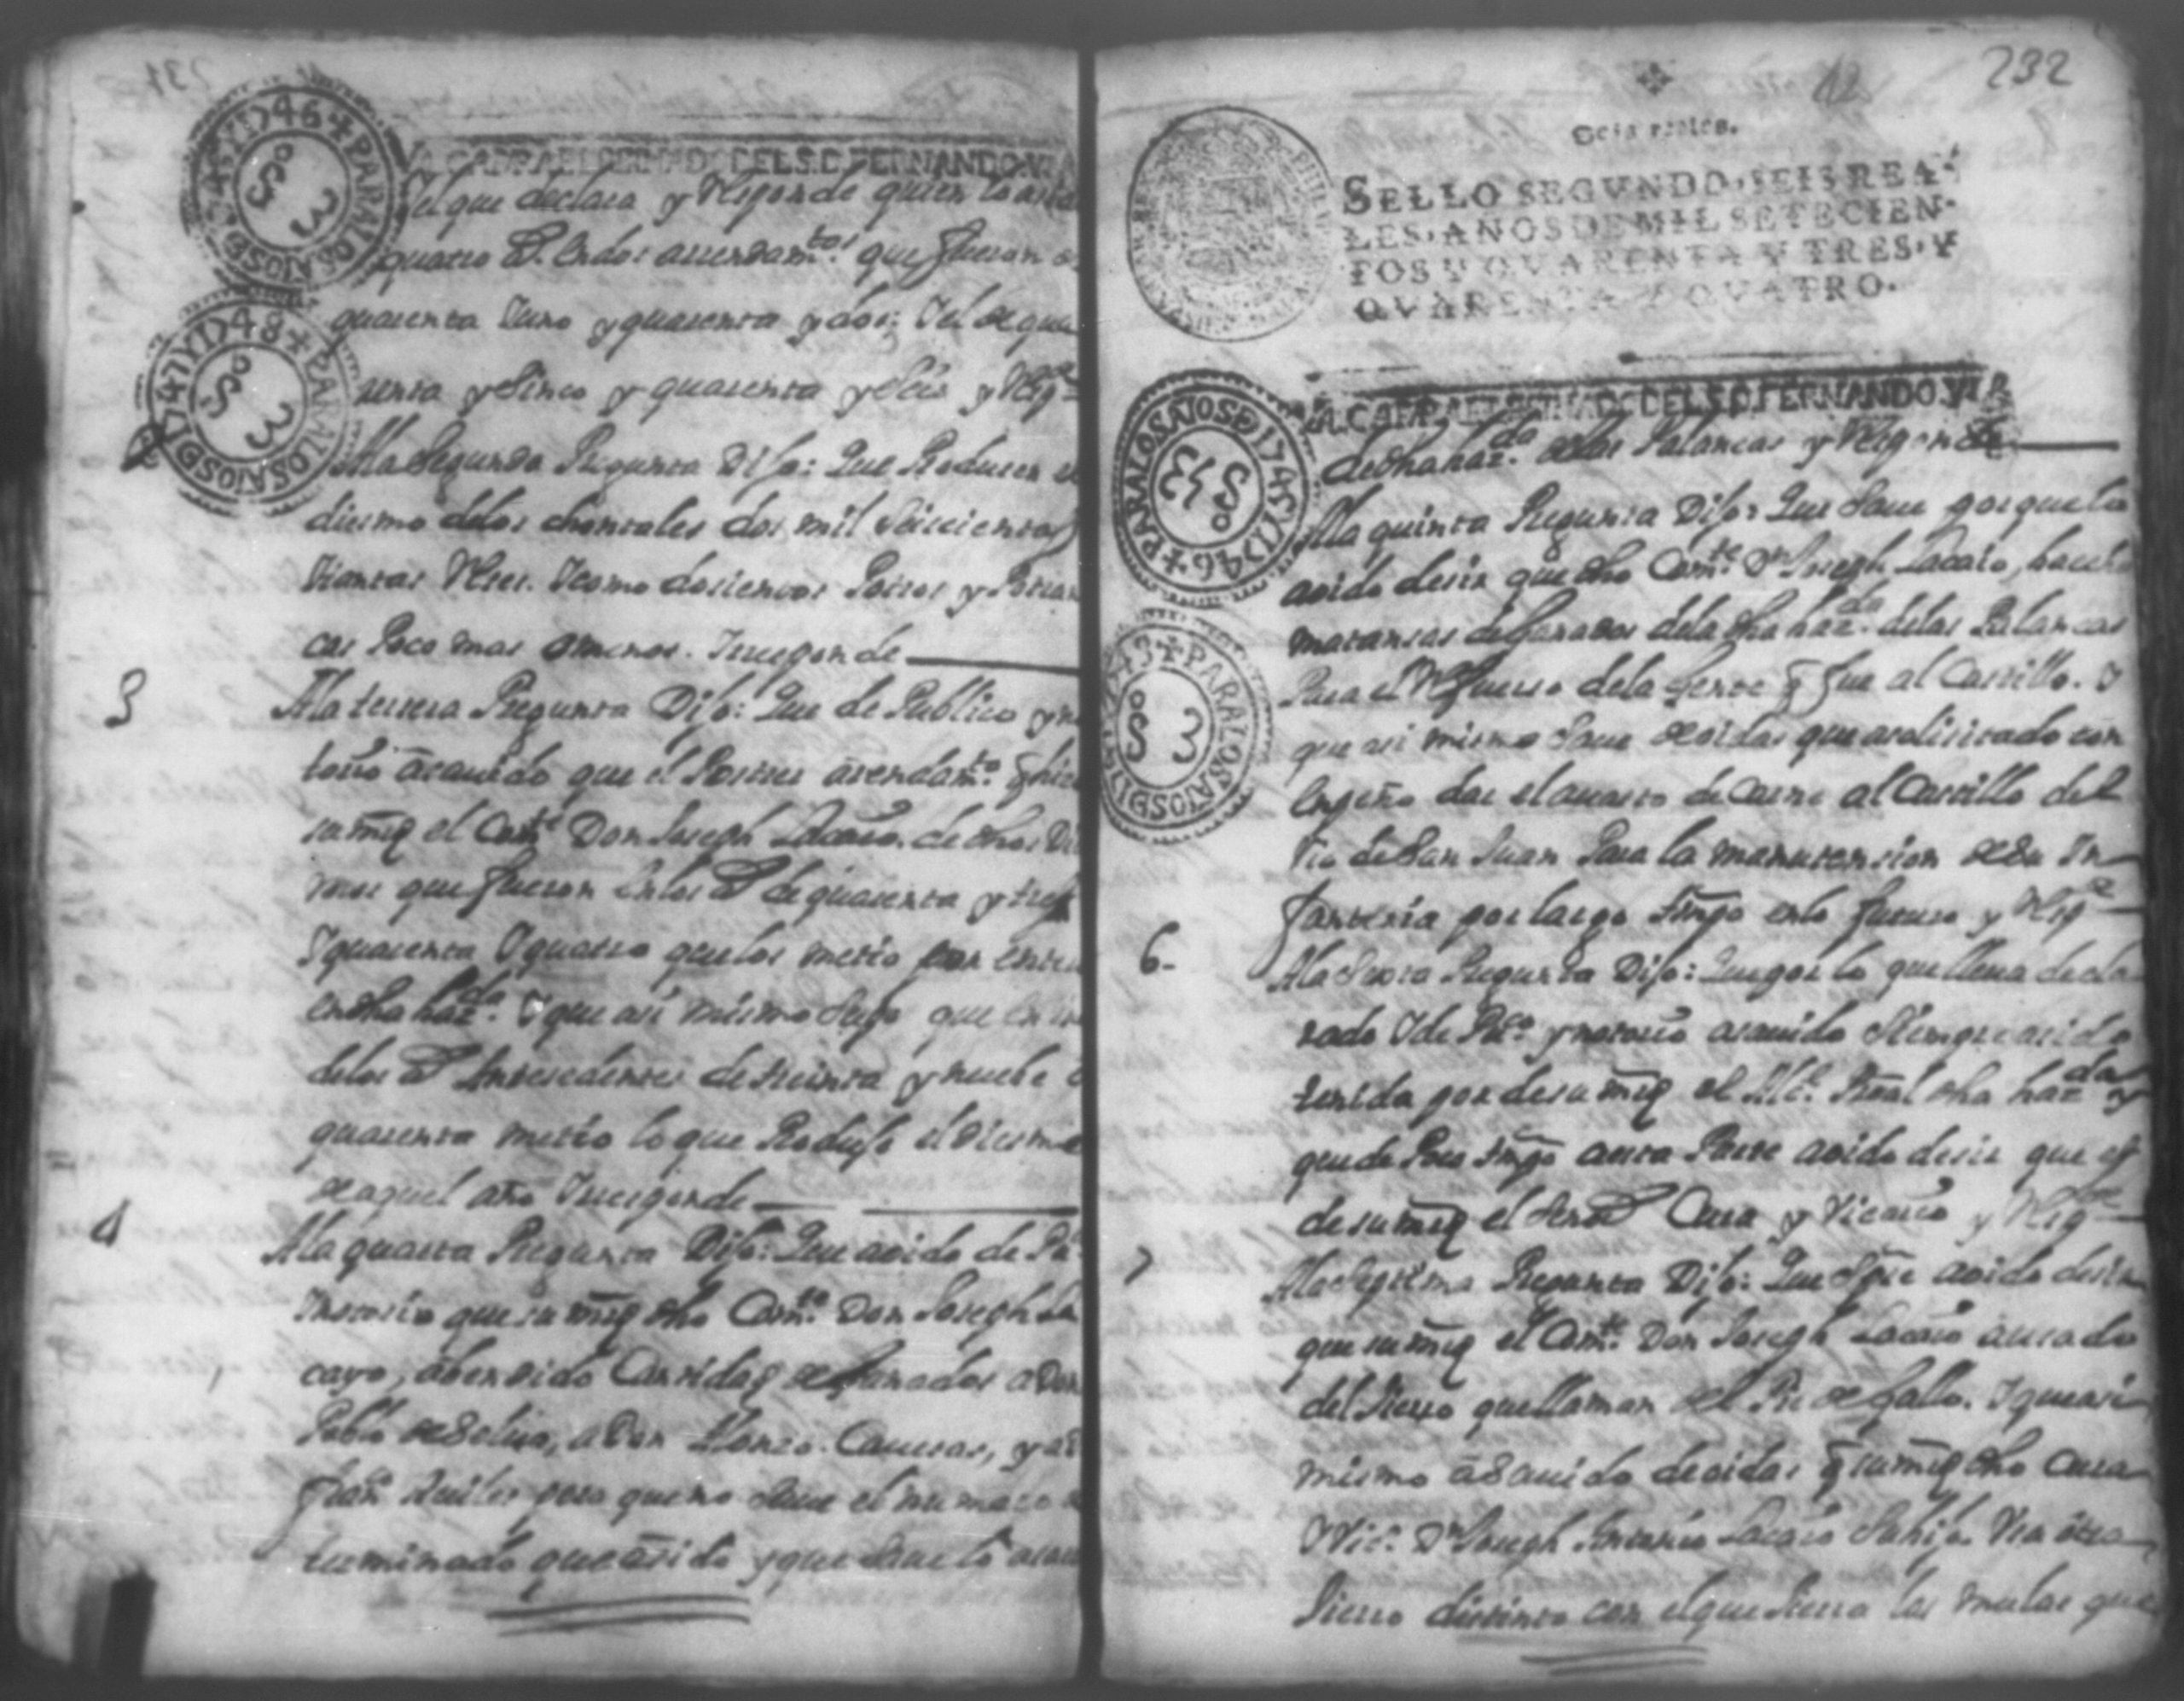 1745 Y 1746 + PARA LOS AJOS DE
S 3
VALGA PARA EL REINADO DEL S. D. FERNANDO. VI
Y el que declara y Responde quien lo
quatro as. en dos arrendamtos. que fueron
quarenta Iuno y quarenta y dos; Y el de qua
renta y Sinco y quarenta y Seis y Resp.
1747 Y 1748 + PARA LOS AJOS DE
S 3
2
Ala Segunda Pregunta Dijo: Que Producen el
diesmo delos chontales dos mil Seiscientas
Tiantas Reses. Icomo dosientos Potros y Potran
cas Poco mas omenos. Iresponde
3
Ala tersera Pregunta Dijo: Que de Publico y no
torio a sauido que el Postrer arendamto. q hizo
su mrd el Comte. Don Joseph Lacaio. de dhos Di
mos que fueron en los as de quarenta y tres
Iquarenta Iquatro que los metio por entero
en dha hazda. Y que asi mismo Supo que
delos as Antesedentes de treinta y nuebe
quarenta metio lo que Produjo el Diesmo
de aquel año Iresponde
4
Ala quarta Pregunta Dijo: Que aoido de Pu
Inotorio que su mrd dho Comte. Don Joseph La
cayo, abendido Cantidades de Ganados a Don
Pablo de Solus, a Don Alonzo Caueras, y a
Fran. Auiles pero que no Saue el numero
terminado que asido y que Saue lo
12
232
Seis reales.
SELLO SEGVNDO, SEIS REA-
LES, AÑOS DE MIL SETECIEN-
TOS Y QVARENTA Y TRES, Y
QVARENTA Y QVATRO.
VALGA PARA EL REINADO DEL S. D. FERNANDO. VI
1745 Y 1746 + PARA LOS AJOS DE
S 3
de dha hazda. delas Palancas y Responde
Ala quinta Pregunta Dijo: Que Saue porque lo
aoido desir que dho Comte. Dn Joseph Lacaio, hacia
matansas de Ganados dela dha hazda. delas Palancas
Para el Refuerso dela gente q fue al Castillo. Y
que asi mismo Saue de oidas que a solisitado con
enpeño dar el auasto de Carne al Castillo del
Rio de San Juan Para la manutension de su In-
fanteria por largo tiempo en lo futuro y Respe
PARA LOS AJOS DE
S 3
6.
Ala Sexta Pregunta Dijo: Que por lo que lleua decla
rado I de Pco. y notorio a sauido Siempre asido
tenida por de su mrd el Alf. Real dha hazda y
que de Poco tiempo a esta Parte aoido desir que es
de su mrd el Señor Cura y Vicario y Respe
7
Ala Septima Pregunta Dijo: Que Spre aoido desir
que su mrd el Comte. Don Joseph Lacaio a usado
del Fierro que llaman del Pie de gallo. I que asi
mismo a Sauido de oidas q su mrd dho Cura
Y Vic. Dn Joseph Antonio Lacaio Su hijo Usa otro
Fierro distinto con el que Fierra las mulas que